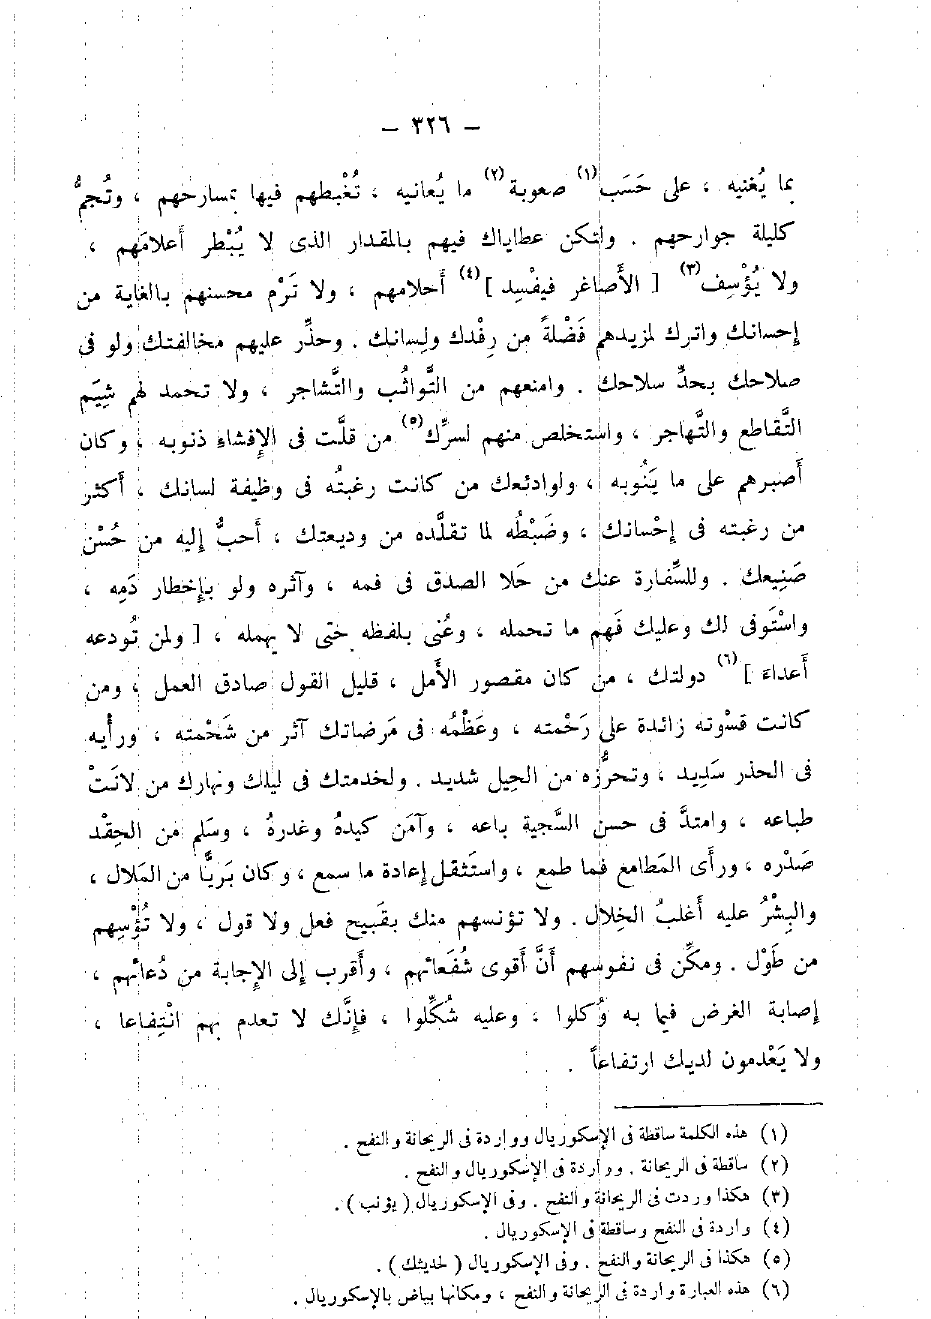 — ٣٢٦ —
بما يُغنيه ، على حَسَب(١) صعوبة(٢) ما يُعانيه ، تُغْبطهم فيها بمسارحهم ، وتُجمُّ
كليلة جوارحهم . ولتكن عطاياك فيهم بالمقدار الذى لا يُبْطر أعلامَهم ،
ولا يُؤْسِف(٣) [ الأَصاغر فيفْسِد ](٤) أَحلامهم ، ولا تَرْم محسنهم بالغاية من
إِحسانك واترك لمزيدهم فَضْلةً من رِفْدك ولِسانك . وحذِّر عليهم مخالفتك ولو فى
صلاحك بحدِّ سلاحك . وامنعهم من التَّواثُب والتَّشاجر ، ولا تحمد لهم شِيَم
التَّقاطع والتَّهاجر ، واستخلص منهم لسرِّك(٥) من قلَّت فى الإِفشاءِ ذنوبه ، وكان
أَصبرهم على ما يَنُوبه ، ولوادئعك من كانت رغبتُه فى وظيفة لسانك ، أَكثر
من رغبته فى إِحْسانك ، وضَبْطُه لما تقلَّده من وديعتك ، أَحبُّ إِليه من حُسْن
صَنِيعك . وللسِّفارة عنك من حَلا الصدق فى فمه ، وآثره ولو بإِخطار دَمِه ،
واسْتَوفى لك وعليك فَهم ما تحمله ، وعُنى بلفظه حتى لا يهمله ، [ ولمن تُودعه
أَعداءَ ](٦) دولتك ، من كان مقصور الأَمل ، قليل القول صادق العمل ، ومن
كانت قسْوته زائدة على رَحْمته ، وعَظْمُه فى مَرضاتك آثر من شَحْمته ، ورأْيه
فى الحذر سَدِيد ، وتحرُّزه من الحِيل شديد . ولخدمتك فى ليلك ونهارك من لانَتْ
طباعه ، وامتدَّ فى حسن السَّجية باعه ، وآمَن كيدهُ وغدرهُ ، وسلِم من الحِقْد
صَدْره ، ورأَى المَطامع فما طمع ، واستَثقل إِعادة ما سمع ، وكان بَريًّا من المَلال ،
والبِشْرُ عليه أَغلبُ الخِلال . ولا تؤنسهم منك بقَبيح فعل ولا قول ، ولا تُؤْسِهم
من طَوْل . ومكِّن فى نفوسهم أَنَّ أَقوى شُفَعائهم ، وأَقرب إِلى الإِجابة من دُعائهم ،
إِصابة الغرض فيما به وُكلوا ، وعليه شُكِّلوا ، فإِنَّك لا تعدم بهم انْتِفاعا ،
ولا يَعْدمون لديك ارتفاعاً .
(١) هذه الكلمة ساقطة فى الإسكوريال وواردة فى الريحانة والنفح .
(٢) ساقطة فى الريحانة . وواردة فى الإسكوريال والنفح .
(٣) هكذا وردت فى الريحانة والنفح . وفى الإسكوريال ( يؤنب ) .
(٤) واردة فى النفح وساقطة فى الإسكوريال .
(٥) هكذا فى الريحانة والنفح . وفى الإسكوريال ( لحديثك ) .
(٦) هذه العبارة واردة فى الريحانة والنفح ، ومكانها بياض بالإسكوريال .